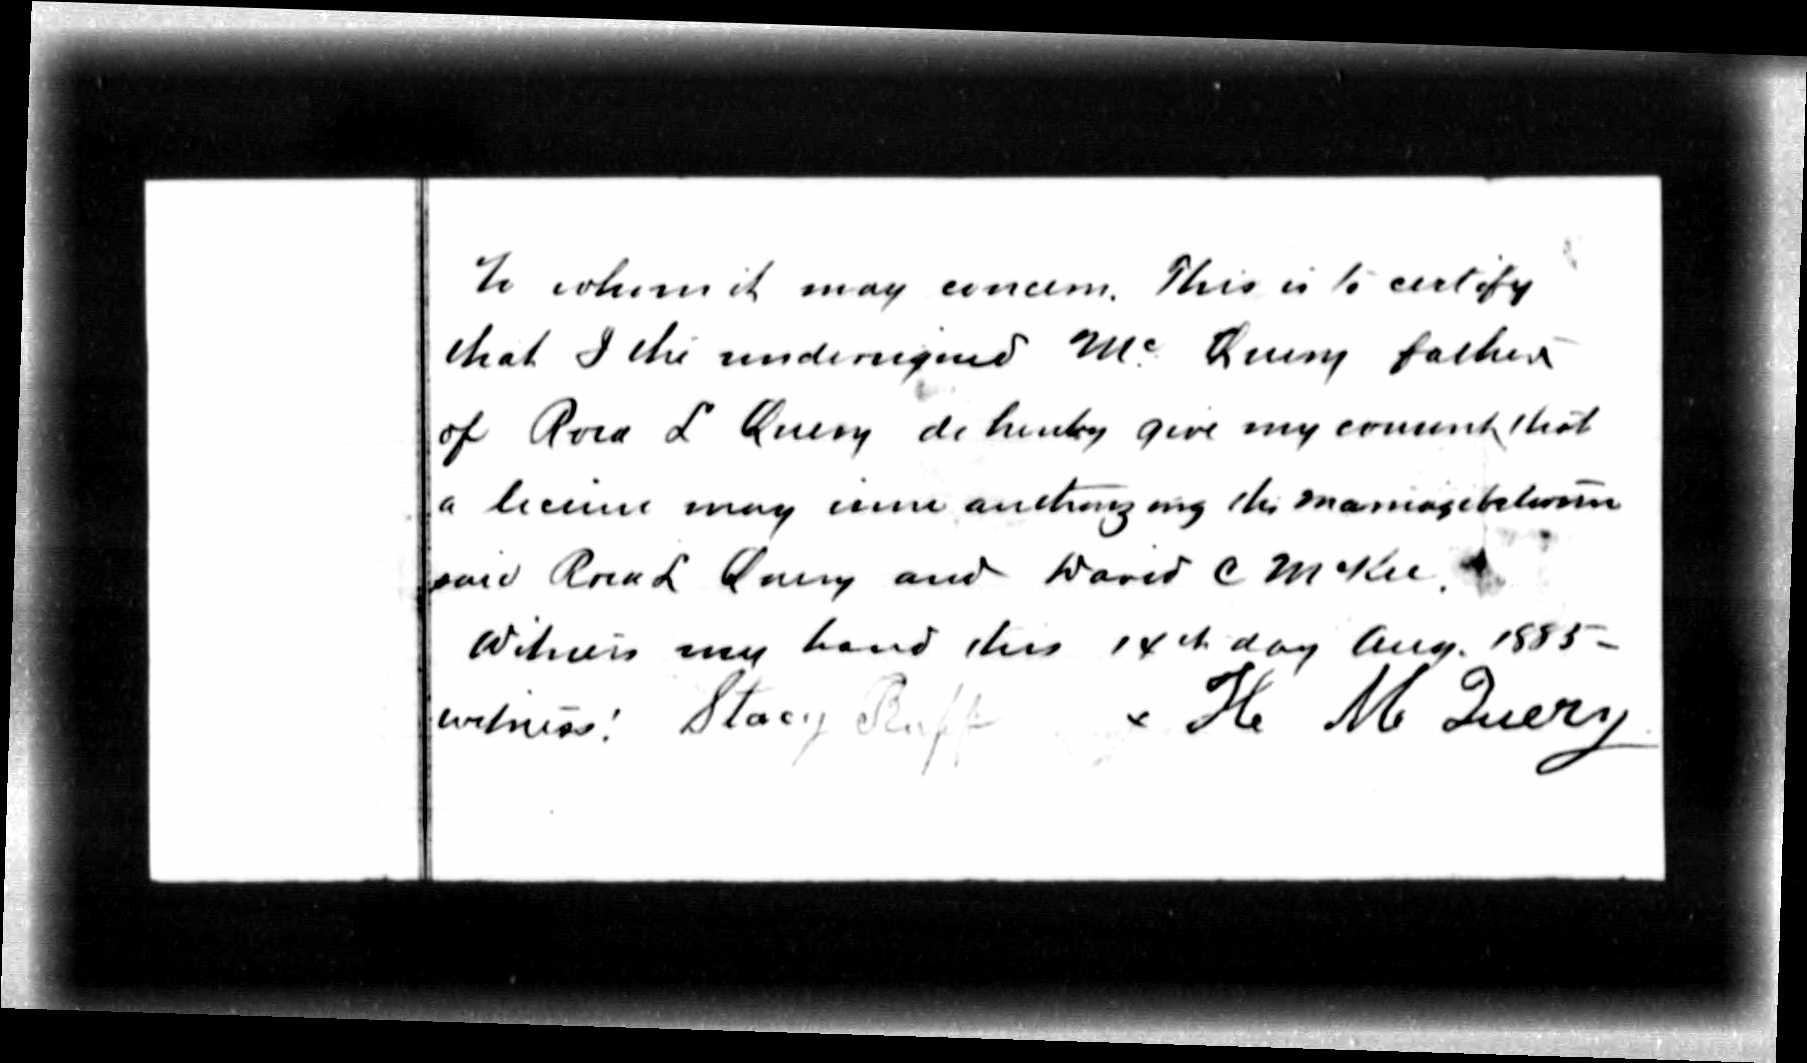 To whom it may concern. This is to certify
that I the undersigned Mc Query father
of Rosa L Query do hereby give my consent that
a license may issue authorizing the marriage between
said Rosa L Query and David C McKee.
Witness my hand this 14th day Aug. 1885-
witness! Stacy Ruff x He Mc Query